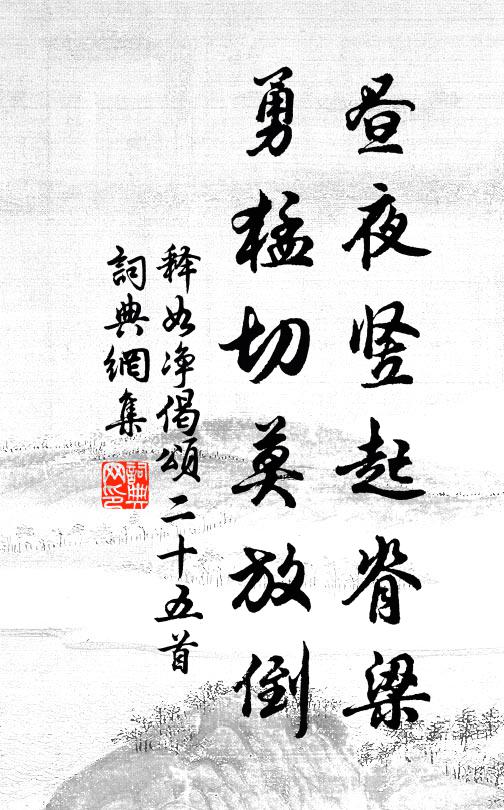 昼夜竖起脊梁
勇猛切莫放倒
释如净偈頌二十五首
詞典網集
詞典
网印